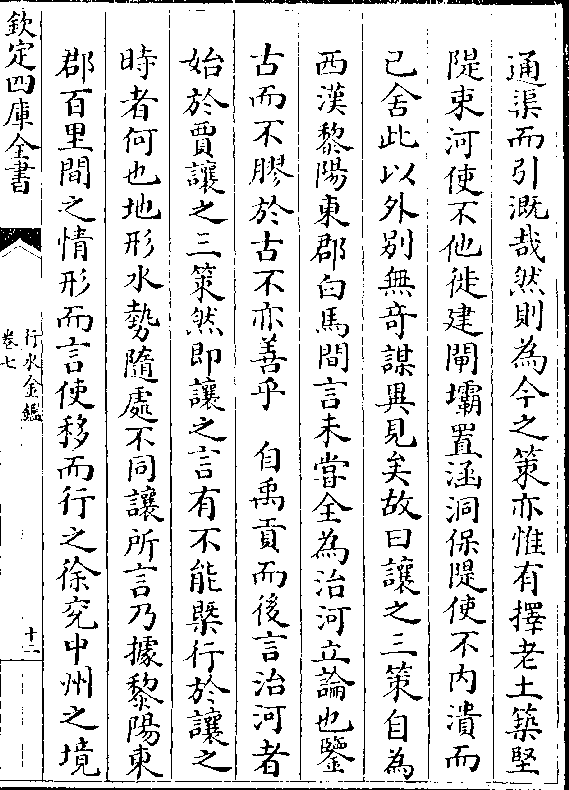 通渠而引溉哉然則為今之策亦惟有擇老土築堅
隄束河使不他徙建閘壩置涵洞保隄使不内潰而
已舍此以外别無奇謀異見矣故曰讓之三策自為
西漢黎陽東郡白馬間言未嘗全為治河立論也鑒
古而不膠於古不亦善乎　自禹貢而後言治河者
始於賈讓之三策然即讓之言有不能槩行於讓之
時者何也地形水勢隨處不同讓所言乃據黎陽東
郡百里間之情形而言使移而行之徐兖中州之境
欽定四庫全書
行水金鑑
卷七
十二